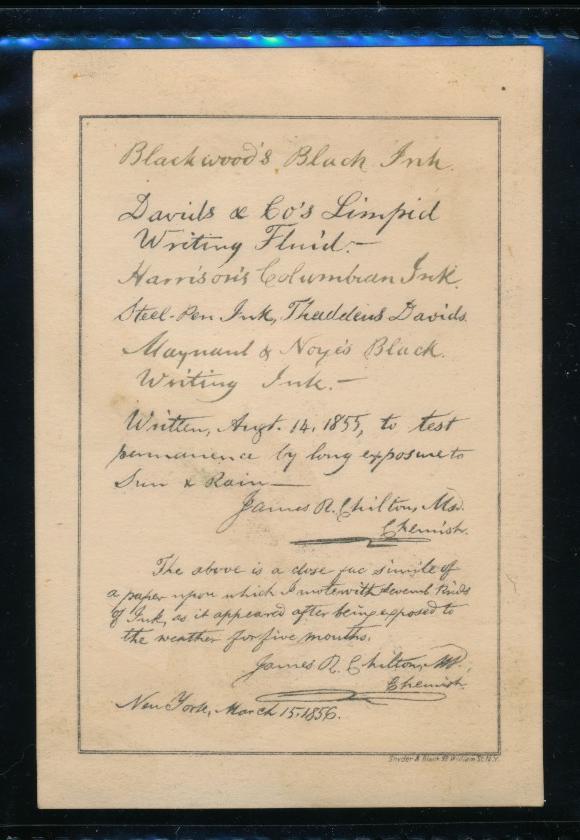 Blackwood's Black Ink.
Davids & Co's Limpid
Writing Fluid.—
Harrison's Columbian Ink.
Steel-Pen Ink, Thaddeus Davids.
Maynard & Noyes Black.
Writing Ink.—
Written, Augt. 14, 1855, to test
permanence by long exposure to
Sun & Rain—
James R. Chilton, Md.
Chemist.
The above is a close fac simile of
a paper upon which I wrote with several kinds
of Ink, as it appeared after being exposed to
the weather for five months.
James R. Chilton, Md.,
Chemist.
New York, March 15, 1856.
Snyder & Black 92 William St. N.Y.